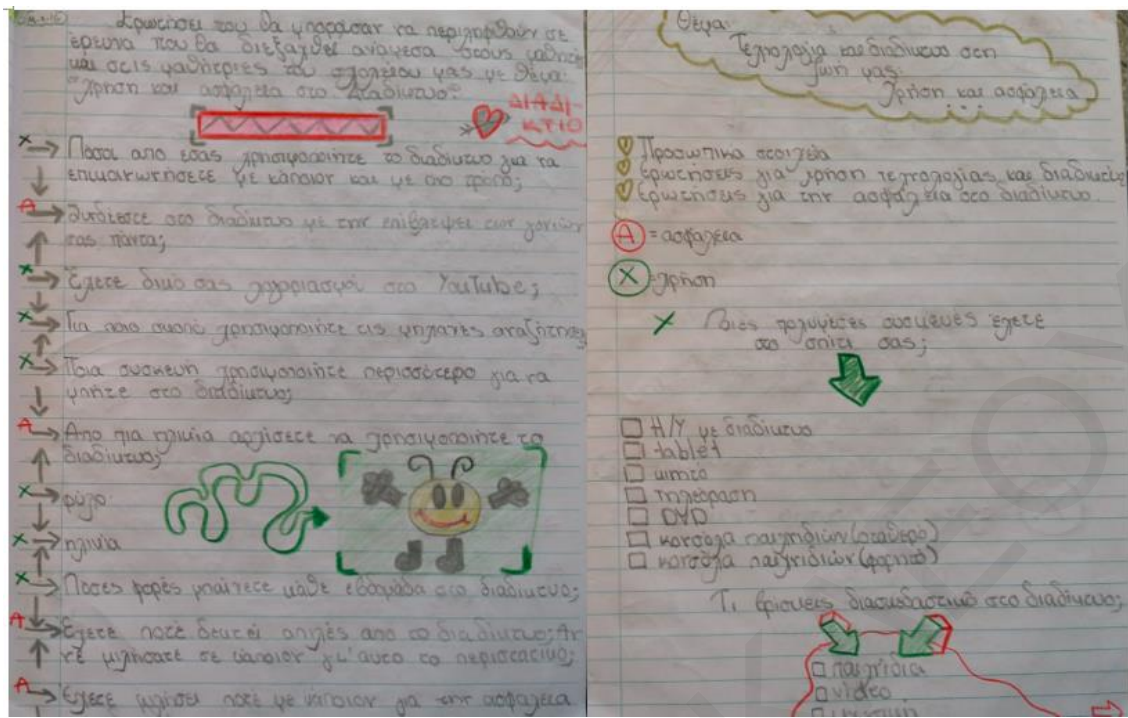 Ερωτήσει που θα μπορούσαν να περιληφθούν σε
έρευνα που θα διεξαχθεί ανάμεσα στους μαθητές
και στις μαθήτριες του σχολείου μας με θέμα:
"Χρήση και ασφάλεια στο Διαδίκτυο"
ΔΙΑΔΙ-
ΚΤΙΟ
X Πόσοι απο εσας χρησιμοποιήτε το διαδίκτυο για να
επικοινωνήσετε με κάποιον και με τρόπο;
A Συνδέεστε στο διαδίκτυο με την επίβλεψει των γονιών
σας πάντα;
X Έχετε δικό σας λογοριασμό στο YouTube;
X Για ποιο σκοπό χρησιμοποιήτε τις μηχανές αναζήτησης
X Ποια συσκευή χρησιμοποιήτε περισσότερο για να
μπήτε στο διαδίκτυο;
A Απο πια ηλικία αρχίσετε να χρησιμοποιήτε το
διαδίκτυο;
X φύλο
X ηλικία
X Ποσες φορές μπαίνετε κάθε εβδομάδα στο διαδίκτυο;
A Έχετε ποτέ δεχτεί απιλές απο το διαδίκτυο; Αν
ναί μιλήσατε σε κάποιον γι'αυτο το περιστατικό;
A Έχετε μιλήσει ποτέ με κάποιον για την ασφάλεια
Θέμα:
Τεχνολογία και διαδίκτυο στη
ζωή μας:
Χρήση και ασφάλεια
Προσωπικά στοιχεία
Ερωτήσεις για χρήση τεχνολογίας και διαδικτύου
Ερωτήσεις για την ασφάλεια στο διαδίκτυο.
A = ασφάλεια
X = χρήση
X Ποιές πολυμέσες συσκευές έχετε
στο σπίτι σας;
Η/Υ με διαδίκτυο
tablet
κινητό
τηλεόραση
DVD
κονσόλα παιχνιδιών (σταθερό)
κονσόλα παιχνιδιών (φορητό)
Τι βρίσκεις διασκεδαστικό στο διαδίκτυο;
παιχνίδια
video
μουσική